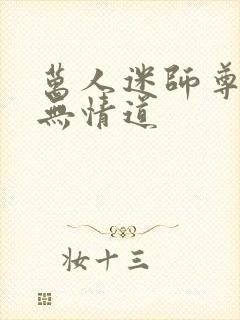 萬人迷師尊
無情道
妝十三